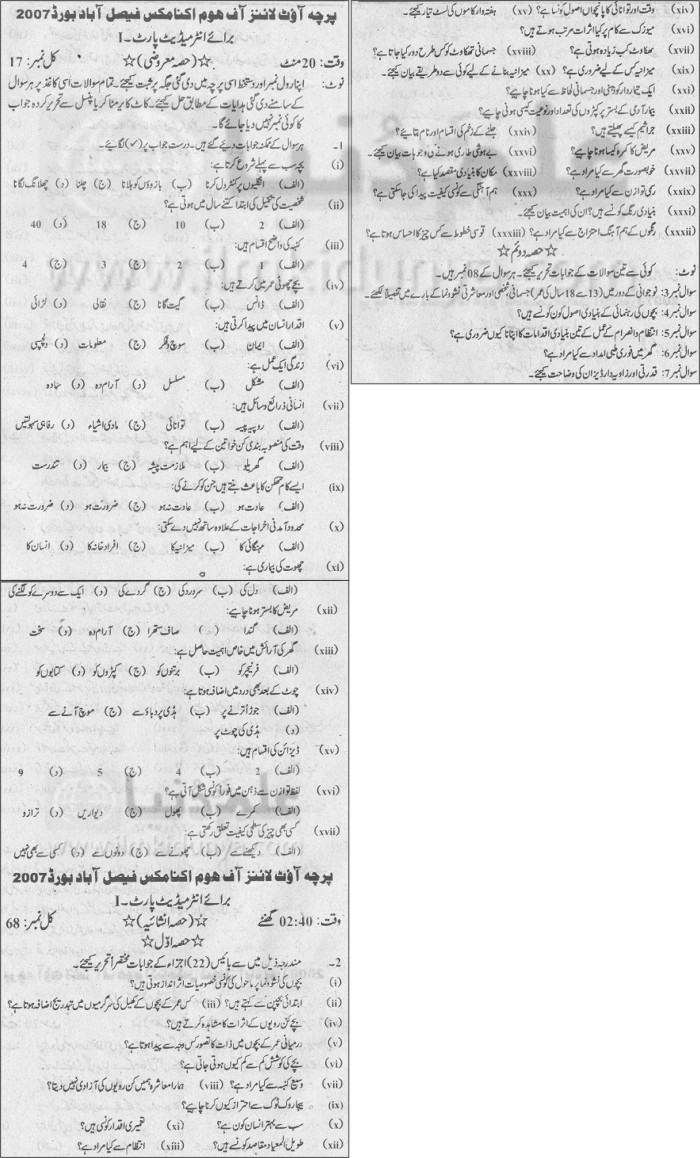 پرچہ آؤٹ لائنز آف ھوم اکنامکس فیصل آباد بورڈ 2007
برائے انٹرمیڈیٹ پارٹ ۔ I
وقت: 20 منٹ ☆(حصہ معروضی)☆ کل نمبر: 17
نوٹ: اپنا رول نمبر اور دستخط اسی پرچہ میں دی گئی جگہ پر ثبت کیجئے۔ تمام سوالات اسی کاغذ پر ہر سوال
کے سامنے دی گئی ہدایات کے مطابق حل کیجئے۔ کاٹ کر یا مٹا کر یا پنسل سے تحریر کردہ جواب
کا کوئی نمبر نہیں دیا جائے گا۔
1۔ ہر سوال کے ممکنہ جوابات دیئے گئے ہیں۔ درست جواب پر (✓) لگائیے۔
(i) بچہ سب سے پہلے شروع کرتا ہے:
(الف) انگلیوں پر کنٹرول کرنا (ب) بازوؤں کو ہلانا (ج) چلنا (د) چھلانگ لگانا
(ii) شخصیت کی تشکیل کی ابتدا کتنے سال میں ہوتی ہے؟
(الف) 2 (ب) 10 (ج) 18 (د) 40
(iii) کنبہ کی واضح اقسام ہیں:
(الف) 1 (ب) 2 (ج) 3 (د) 4
(iv) بچے چھوٹی عمر میں کرتے ہیں:
(الف) ڈانس (ب) گیت گانا (ج) نقالی (د) لڑائی
(v) اقدار انسان میں پیدا کرتی ہیں:
(الف) ایمان (ب) سوچ و فکر (ج) معلومات (د) دلچسپی
(vi) زندگی ایک عمل ہے:
(الف) مشکل (ب) مسلسل (ج) آرام دہ (د) سادہ
(vii) انسانی ذرائع وسائل ہیں:
(الف) روپیہ پیسہ (ب) توانائی (ج) مادی اشیاء (د) رفاہی سہولتیں
(viii) وقت کی منصوبہ بندی کن خواتین کے لیے اہم ہے؟
(الف) گھریلو (ب) ملازمت پیشہ (ج) بیمار (د) تندرست
(ix) ایسے کام تھکن کا باعث بنتے ہیں جن کو کرنے کی:
(الف) عادت ہو (ب) عادت نہ ہو (ج) ضرورت ہو (د) ضرورت نہ ہو
(x) محدود آمدنی اخراجات کے علاوہ ساتھ نہیں دے سکتی:
(الف) مہنگائی کا (ب) میزانیہ کا (ج) افراد خانہ کا (د) انسان کا
(xi) چھوت کی بیماری ہے:
(الف) دل کی (ب) سر درد کی (ج) گردے کی (د) ایک سے دوسرے کو لگنے کی
(xii) مریض کا بستر ہونا چاہیے:
(الف) گندا (ب) صاف ستھرا (ج) آرام دہ (د) سخت
(xiii) گھر کی آرائش میں خاص اہمیت حاصل ہے:
(الف) فرنیچر کو (ب) برتنوں کو (ج) کپڑوں کو (د) کتابوں کو
(xiv) چوٹ کے بعد بھی درد میں اضافہ ہوتا ہے:
(الف) جوڑ اُترنے پر (ب) ہڈی پر دباؤ سے (ج) موچ آنے سے
(د) ہڈی کی چوٹ پر
(xv) ڈیزائن کی اقسام ہیں:
(الف) 2 (ب) 4 (ج) 5 (د) 9
(xvi) لفظ توازن سے ذہن میں فوراً کونسی شکل آتی ہے؟
(الف) کمرے (ب) پھول (ج) دیواریں (د) ترازو
(xvii) کسی بھی چیز کی سطحی کیفیت تعلق رکھتی ہے:
(الف) دیکھنے سے (ب) چھونے سے (ج) دونوں سے (د) کسی سے بھی نہیں
پرچہ آؤٹ لائنز آف ھوم اکنامکس فیصل آباد بورڈ 2007
برائے انٹرمیڈیٹ پارٹ ۔ I
وقت: 02:40 گھنٹے ☆(حصہ انشائیہ)☆ کل نمبر: 68
☆ حصہ اوّل ☆
2۔ مندرجہ ذیل میں سے بائیس (22) اجزاء کے جوابات مختصراً تحریر کیجئے۔
(i) بچوں کی نشوونما پر ماحول کی کونسی خصوصیات اثر انداز ہوتی ہیں؟
(ii) ابتدائی بچپن سے کہتے ہیں؟ (iii) کس عمر کے بچوں کے کھیل کی سرگرمیوں میں بتدریج اضافہ ہوتا ہے؟
(iv) بچے کن رویوں کے اثرات کا مشاہدہ کرتے ہیں؟
(v) درمیانی عمر کے بچوں میں ذات کا تصور کس وجہ سے پیدا ہوتا ہے؟
(vi) بچے کی کوشش کم سے کم کیوں ہوتی جاتی ہے؟
(vii) وسیع کنبہ سے کیا مراد ہے؟ (viii) ہمارا معاشرہ ہمیں کن رویوں کی آزادی نہیں دیتا؟
(ix) بیجا روک ٹوک سے احتراز کیوں کرنا چاہیے؟
(x) سب سے بہتر انسان کون ہے؟ (xi) تعمیری اقدار کونسی ہیں؟
(xii) طویل المعیاد مقاصد کونسے ہیں؟ (xiii) انتظام سے کیا مراد ہے؟
(xiv) وقت اور توانائی کا پانچواں اصول کونسا ہے؟ (xv) ہفتہ وار کاموں کی لسٹ تیار کیجئے۔
(xvi) میوزک سے کام پر کیا اثرات مرتب ہوتے ہیں؟
(xvii) تھکاوٹ کب زیادہ ہوتی ہے؟ (xviii) جسمانی تھکاوٹ کو کس طرح دور کیا جاتا ہے؟
(xix) میزانیہ کس کیلئے ضروری ہے؟ (xx) میزانیہ بنانے کے لیے کوئی سے دو طریقے بیان کیجئے۔
(xxi) ایک تیماردار کو ذہنی اور جسمانی لحاظ سے کیا ہونا چاہیے؟
(xxii) بیمار آدمی کے بستر پر کپڑوں کی تعداد اور نوعیت کیسی ہونی چاہیے؟
(xxiii) جراثیم کیسے پھیلتے ہیں؟ (xxiv) جلنے کے زخم کی اقسام اور نام بتائیے؟
(xxv) مریض کا کمرہ کیسا ہونا چاہیے؟ (xxvi) بے ہوشی طاری ہونے کی دو وجوہات بیان کیجئے۔
(xxvii) خوبصورت گھر سے کیا مراد ہے؟ (xxviii) مکان کا بنیادی مقصد کیا ہے؟
(xxix) رسمی توازن سے کیا مراد ہے؟ (xxx) ہم آہنگی سے کونسی کیفیت پیدا کی جا سکتی ہے؟
(xxxi) بنیادی رنگ کونسے ہیں؟ ان کی اہمیت بیان کیجئے۔
(xxxii) رنگوں کے ہم آہنگ امتزاج سے کیا مراد ہے؟ (xxxiii) قوسی خطوط سے کس چیز کا احساس ہوتا ہے؟
☆ حصہ دوئم ☆
نوٹ: کوئی سے تین سوالات کے جوابات تحریر کیجئے۔ ہر سوال کے 08 نمبر ہیں۔
سوال نمبر 3: نوجوانی کے دور میں (13 سے 18 سال کی عمر) جسمانی، شخصی اور معاشرتی نشوونما کے بارے میں تفصیلاً لکھئے۔
سوال نمبر 4: بچوں کی رہنمائی کے بنیادی اصول کون کونسے ہیں؟
سوال نمبر 5: انتظام و انصرام کے عمل کے تین بنیادی اقدامات کا اپنانا کیوں ضروری ہے؟
سوال نمبر 6: گھر میں فوری طبی امداد سے کیا مراد ہے؟
سوال نمبر 7: قدرتی اور زاویہ دار ڈیزائن کی وضاحت کیجئے۔